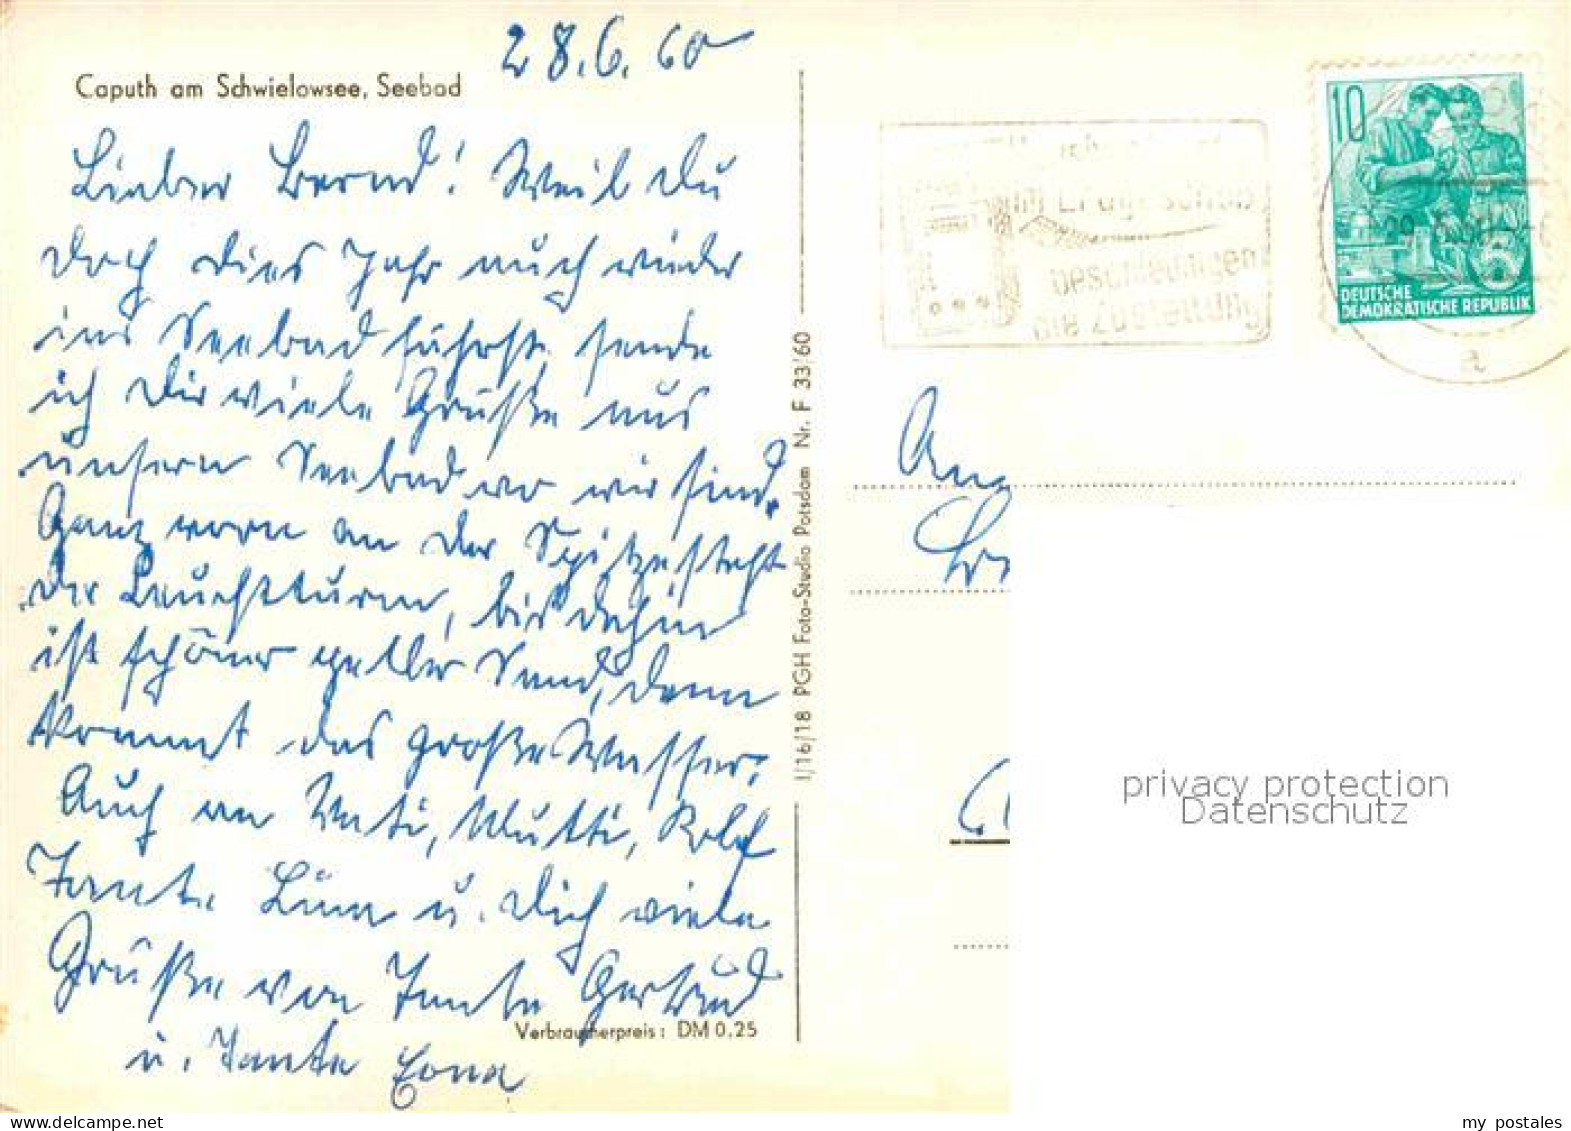 28.6.60
Caputh am Schwielowsee, Seebad
Lieber Bernd! Weil Du
doch dies Jahr auch wieder
ins Seebad fährst, sende
ich Dir viele Grüße aus
unsern Seebad wo wir sind.
Ganz vorn an der Spitze, steht
der Leuchtturm, bis dahin
ist schöner gelber Sand, dann
kommt das große Wasser.
Auch an Vati, Mutti, Rolf
Tante u. Dich viele
Grüße von Tante Gertrud
u. Tante
Verbraucherpreis: DM 0,25
I/16/18 PGH Foto-Studio Potsdam Nr. F 33/60
im Erdgeschoß
beschleunigen
die Zustellung
10
DEUTSCHE
DEMOKRATISCHE REPUBLIK
privacy protection
Datenschutz
my_postales